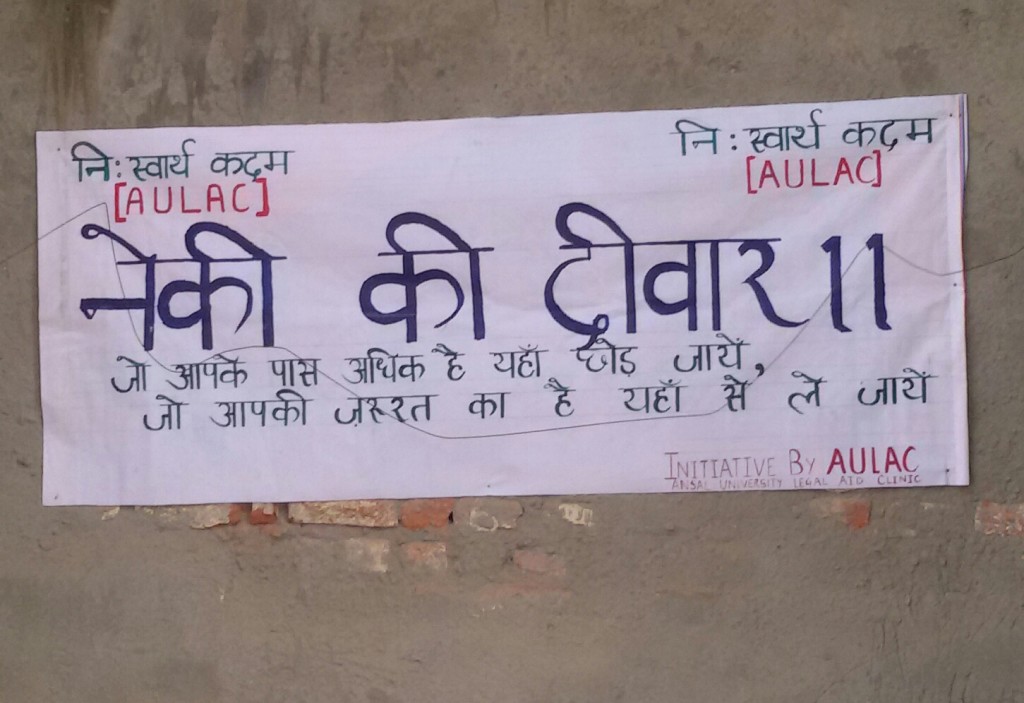 नि: स्वार्थ कदम
[AULAC]
नि: स्वार्थ कदम
[AULAC]
नेकी की दीवार ॥
जो आपके पास अधिक है यहाँ छोड़ जायें,
जो आपकी ज़रूरत का है यहाँ से ले जायें
INITIATIVE BY AULAC
ANSAL UNIVERSITY LEGAL AID CLINIC